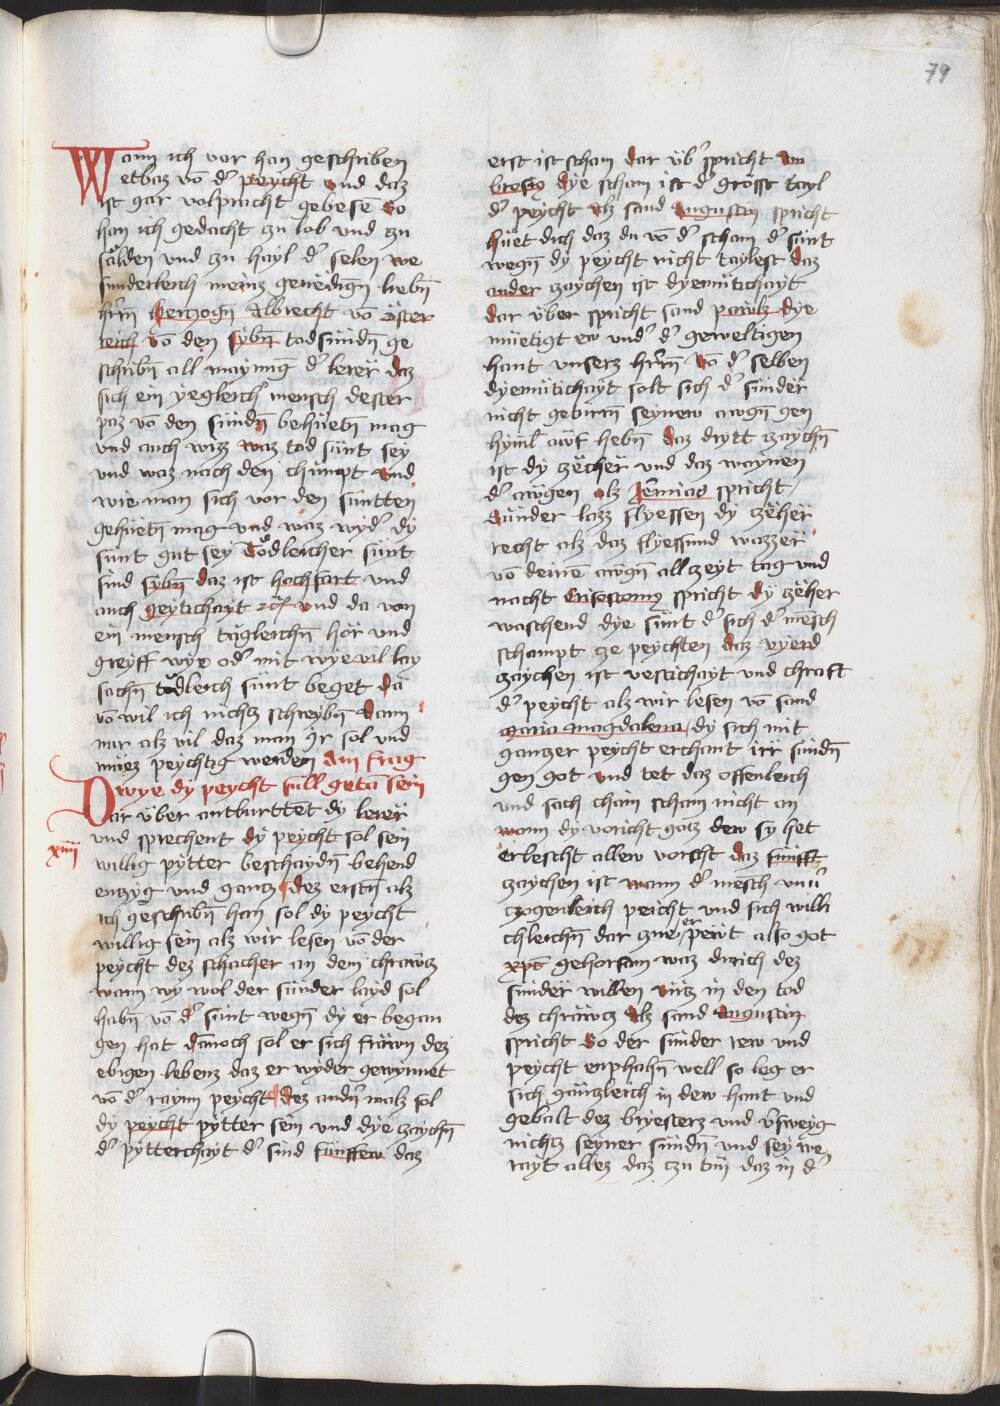 79
Wann ich vor han geschriben
etbaz vō d' peycht und daz
ist gar volpracht gebesē do
han ich gedacht zu lob und zu
sälden und zu hayl d' selen we
sunderleich meinz genedign̄ liebn̄
hr̄n herczogn̄ Albrecht vō öster
reich vō den sybn̄ todsündn̄ ge
schribn̄ all maynūg d' lerer daz
sich ein yegleich mensch dester
paz vō den sündn̄ behüetn̄ mag
und auch wizz waz tod sünt sey
und waz nach den chumpt und
wie man sich vor den süntten
gehüetn̄ mag und waz wyd' dy
sünt gut sey Tödleicher sünt
sind sybn̄ daz ist hochfart und
auch geytichayt etc und da von
ein mensch tägleichn̄ hör und
greyff wye od' mit wye vil lay
sachn̄ tödleich sünt beget da
vō wil ich nichtz schreybn̄ dann
nur alz vil daz man ir sol und
müez peychtig werden Ain frag
wye dy peycht süll getā sein
Dar über antburttet dy lerer
und sprechent dy peycht sol sein
xiiii
willig pytter beschaydn̄ behend
enczyg und gantz dez erstn̄ alz
ich geschribn̄ han sol dy peycht
willig sein alz wir lesen vō der
peycht dez schacher an dem chrawtz
wann wy wol der sünder layd sol
habn̄ vō d' sünt wegn̄ dy er began
gen hat dānoch sol er sich fräwn dez
ebigen lebenz daz er wyder gewynnet
vō d' raynn peycht dez andn̄ malz sol
dy peycht pytter sein und dye zaychn̄
d' pytterchayt d' sind fünffew daz
erst ist scham dar üb' spricht Am
brosig dye scham ist d' grösst tayl
d' peycht Alz sand Augustin spricht
hüet dich daz du vō d' scham d' sünt
wegn̄ dy peycht nicht taylest daz
ander zaychen ist dyemütichayt
dar über spricht sand pawlz dye
müetigt ew und' d' geweltigen
hant unserz hr̄rn Vō d' selben
dyemütichayt solt sich d' sünder
nicht geturrn̄ seynew awgn̄ gen
hyml auf hebn̄ daz drytt zaychn̄
ist dy zëcher und daz waynen
d' awgen alz Jermias spricht
Sünder lazz flyessen dy zëher
recht alz daz flyessund wazzer
vō deinē awgn̄ allzeyt tag und
nacht Crisostomg spricht dy zëher
waschend dye sünt d' sich d' mēsch
schampt ze peychten daz vyerd
zaychen ist vestichayt und chraft
d' peycht alz wir lesen vō sand
maria magdalena dy sich mit
ganczer peycht erchant irr sündn̄
gen got und tet daz offenleich
und sach chain scham nicht an
wann dy voricht gotz dew sy het
erlescht allew vorcht daz fünfft
zaychen ist wann d' mēsch un
czogenleich peicht und sich willi
chleichn̄ dar zue perewt also got
xp̄s gehorsam waz durich dez
sünder willen untz in den tod
dez chräwcz Alz sand Augustin
spricht So der sünder rew und
peycht enphahn̄ well so leg er
sich gänzleich in dew hant und
gebalt dez briesterz und v'sweyg
nichtz seyner sündn̄ und sey we
rayt allez daz czu tūn daz in d'